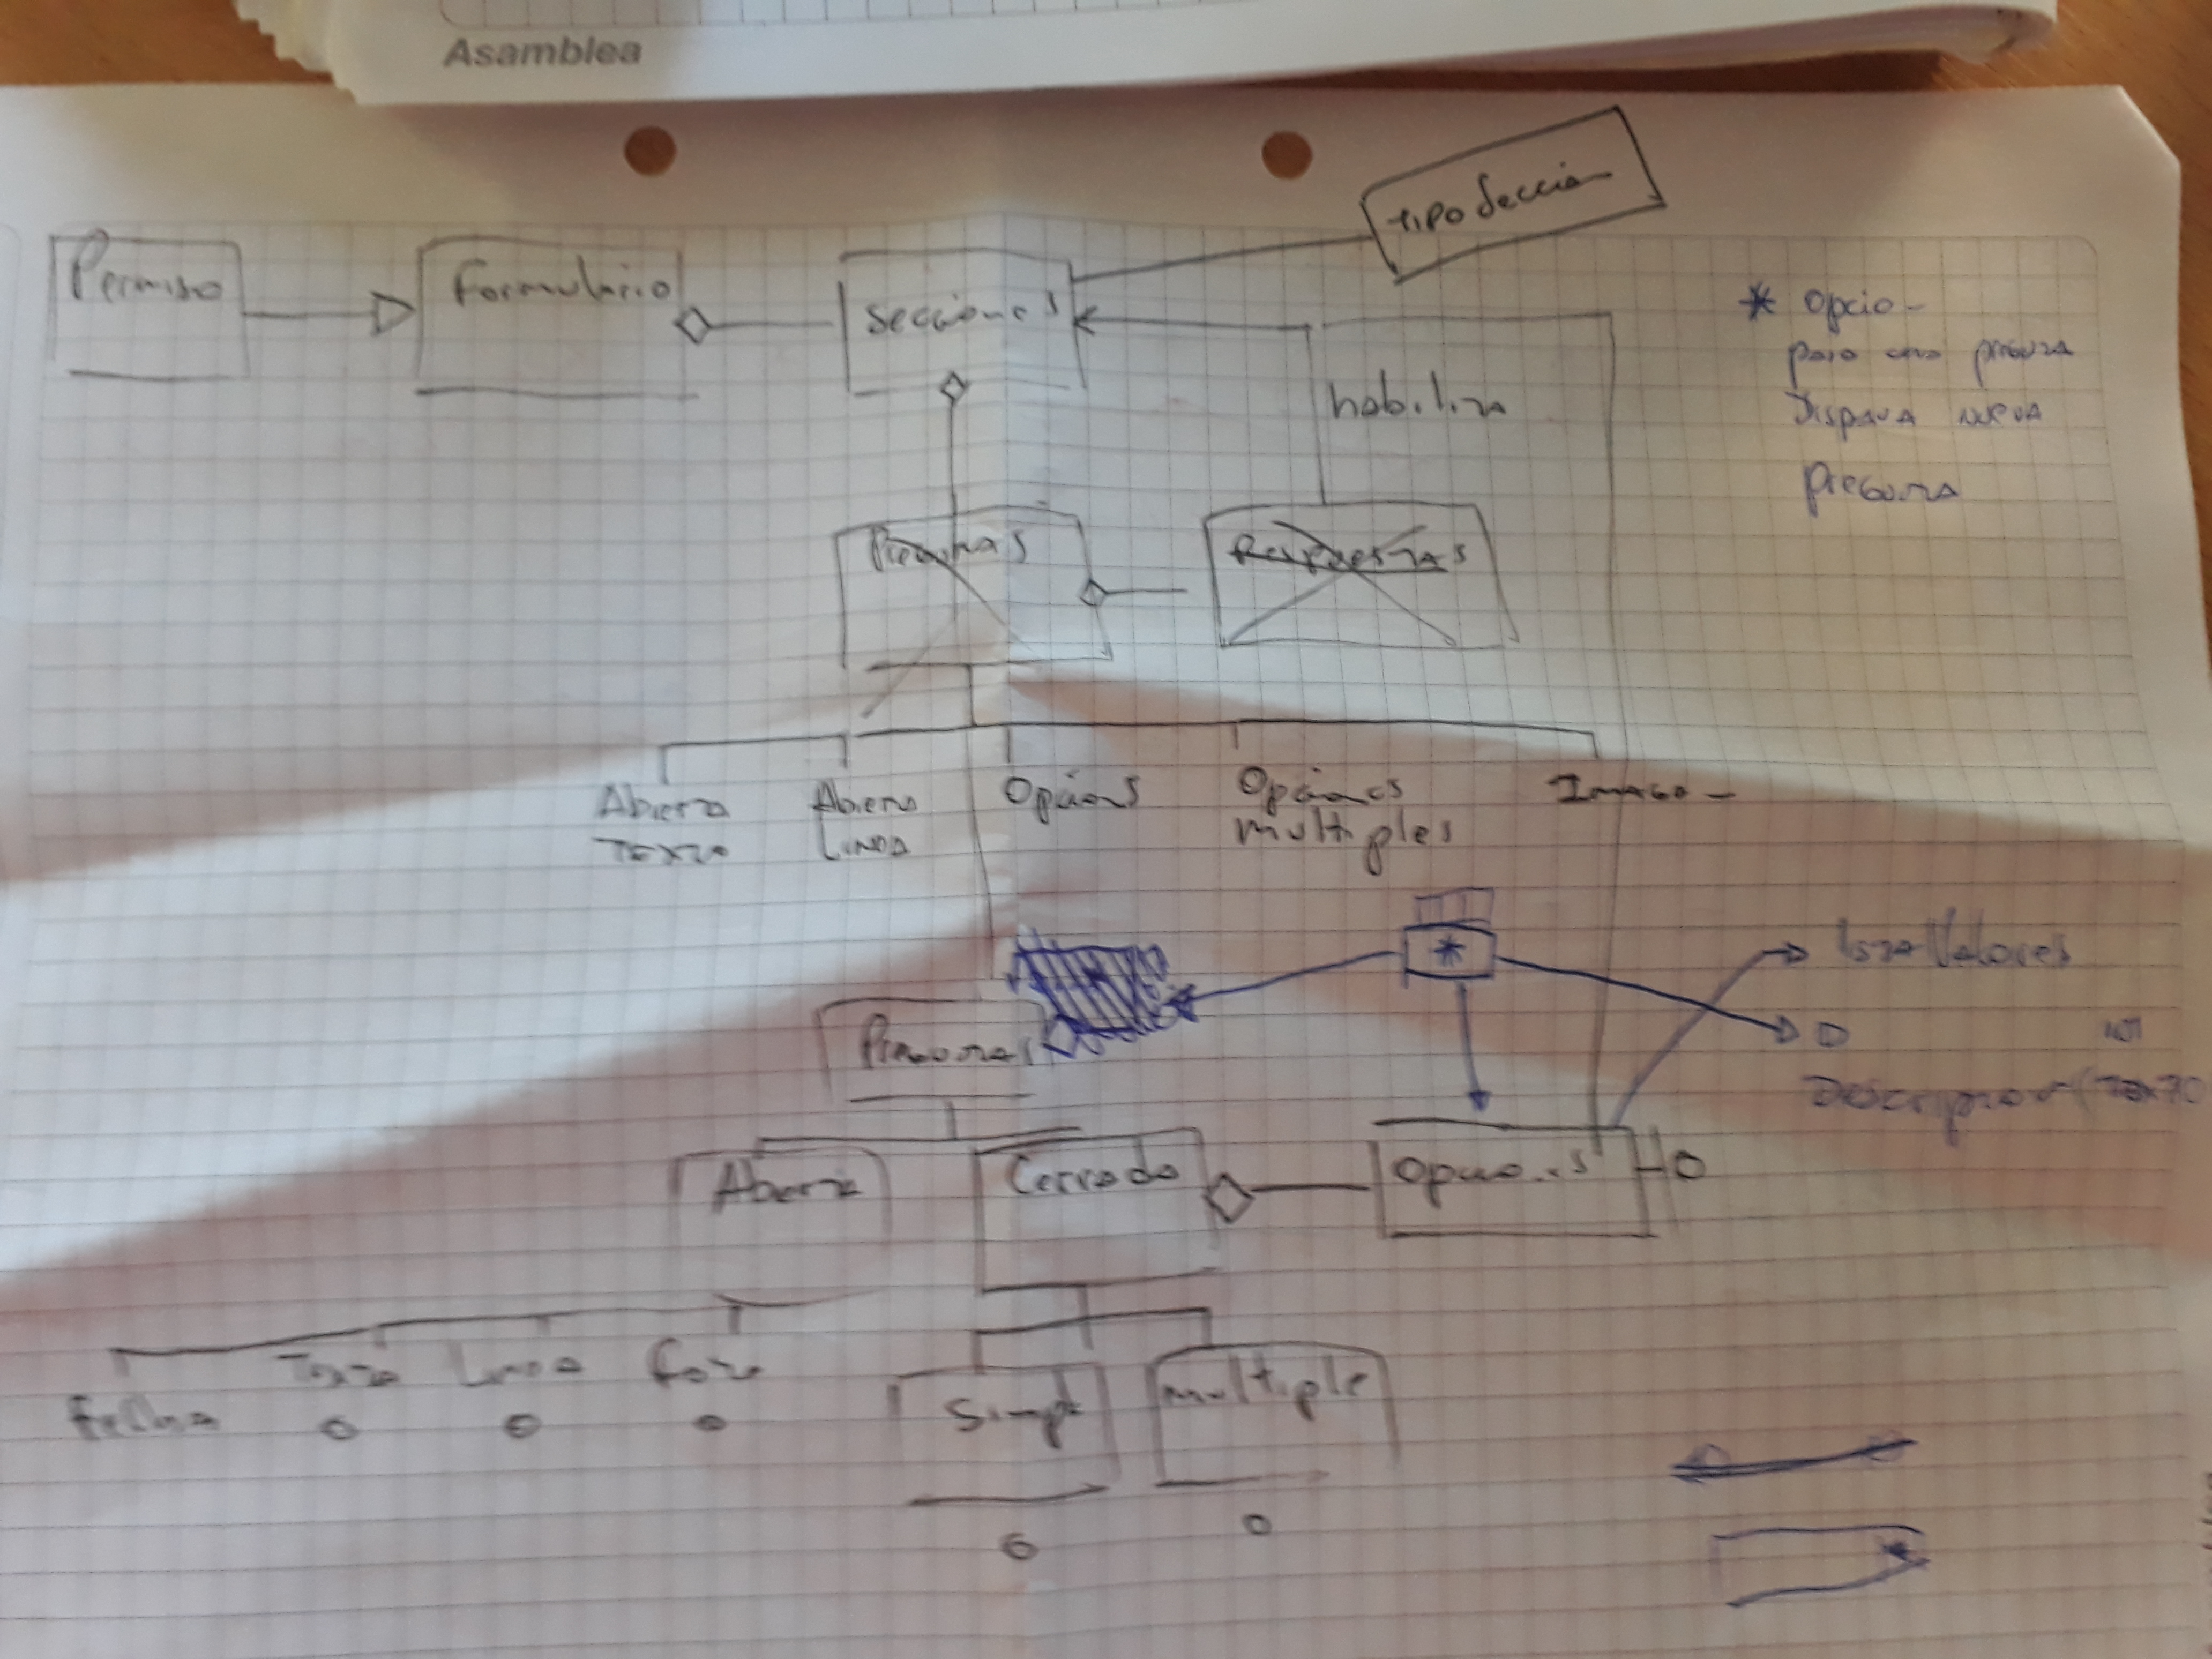 Asamblea
tipo Seccion
Permiso
Formulario
Secciones
* Opcion
para una pregunta
Dispara nueva
pregunta
habilita
Preguntas
Respuestas
Abierta
Texto
Abierta
Linea
Opciones
Opciones
multiples
Imagen
*
lista Valores
Preguntas
Descripcion (texto
Abierta
Cerrada
Opciones
Fecha
Texto
Linea
Foto
Simple
multiple